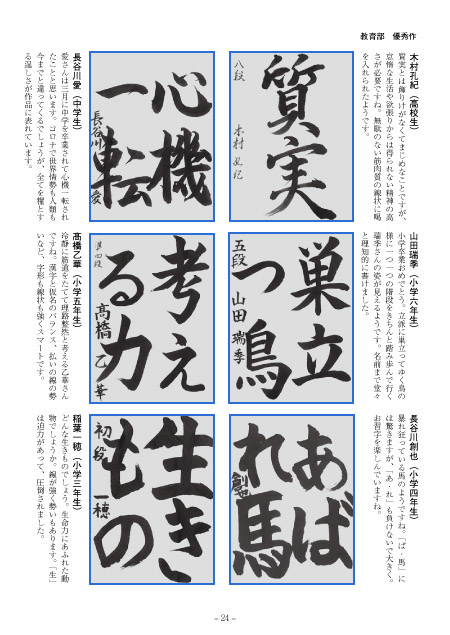 教育部　優秀作
木村孔紀（高校生）
質実とは飾りけがなくてまじめなことですが、
怠惰な生活や欲張りからは得られない精神の高
さが必要ですね。無駄のない筋肉質の線状に喝
を入れられたようです。
質実
八段　木村
長谷川愛（中学生）
愛さんは三月に中学を卒業されて心機一転され
たことと思います。コロナで世界情勢も人類も
今までと違ってくるでしょうが、全てを糧とす
る逞しさが作品に表れています。
心機
一転
長谷川　愛
山田瑞季（小学六年生）
小学卒業おめでとう。立派に巣立ってゆく鳥の
様に一つ一つの階段をきちんと踏み歩んで行く
瑞季さんの姿が見えるようです。名前まで堂々
と理知的に書けました。
巣立
つ鳥
五段　山田瑞季
髙橋乙華（小学五年生）
冷静に筋道をたてて理路整然と考える乙華さん
ですね。漢字と仮名のバランス、払いの線の勢
いなど、字形も線状も強くスマートです。
考え
る力
準四段　髙橋乙華
長谷川創也（小学四年生）
暴れ狂っている馬のようですね。「ば・馬」に
は驚きますが、「あ・れ」も負けないで大きく。
お習字を楽しんでいますね。
あば
れ馬
創也
稲葉一穂（小学三年生）
どんな生きものでしょう。生命力にあふれた動
物でしょうか。線が強く勢いもあります。「生」
は迫力があって、圧倒されました。
生き
もの
初段　一穂
– 24 –